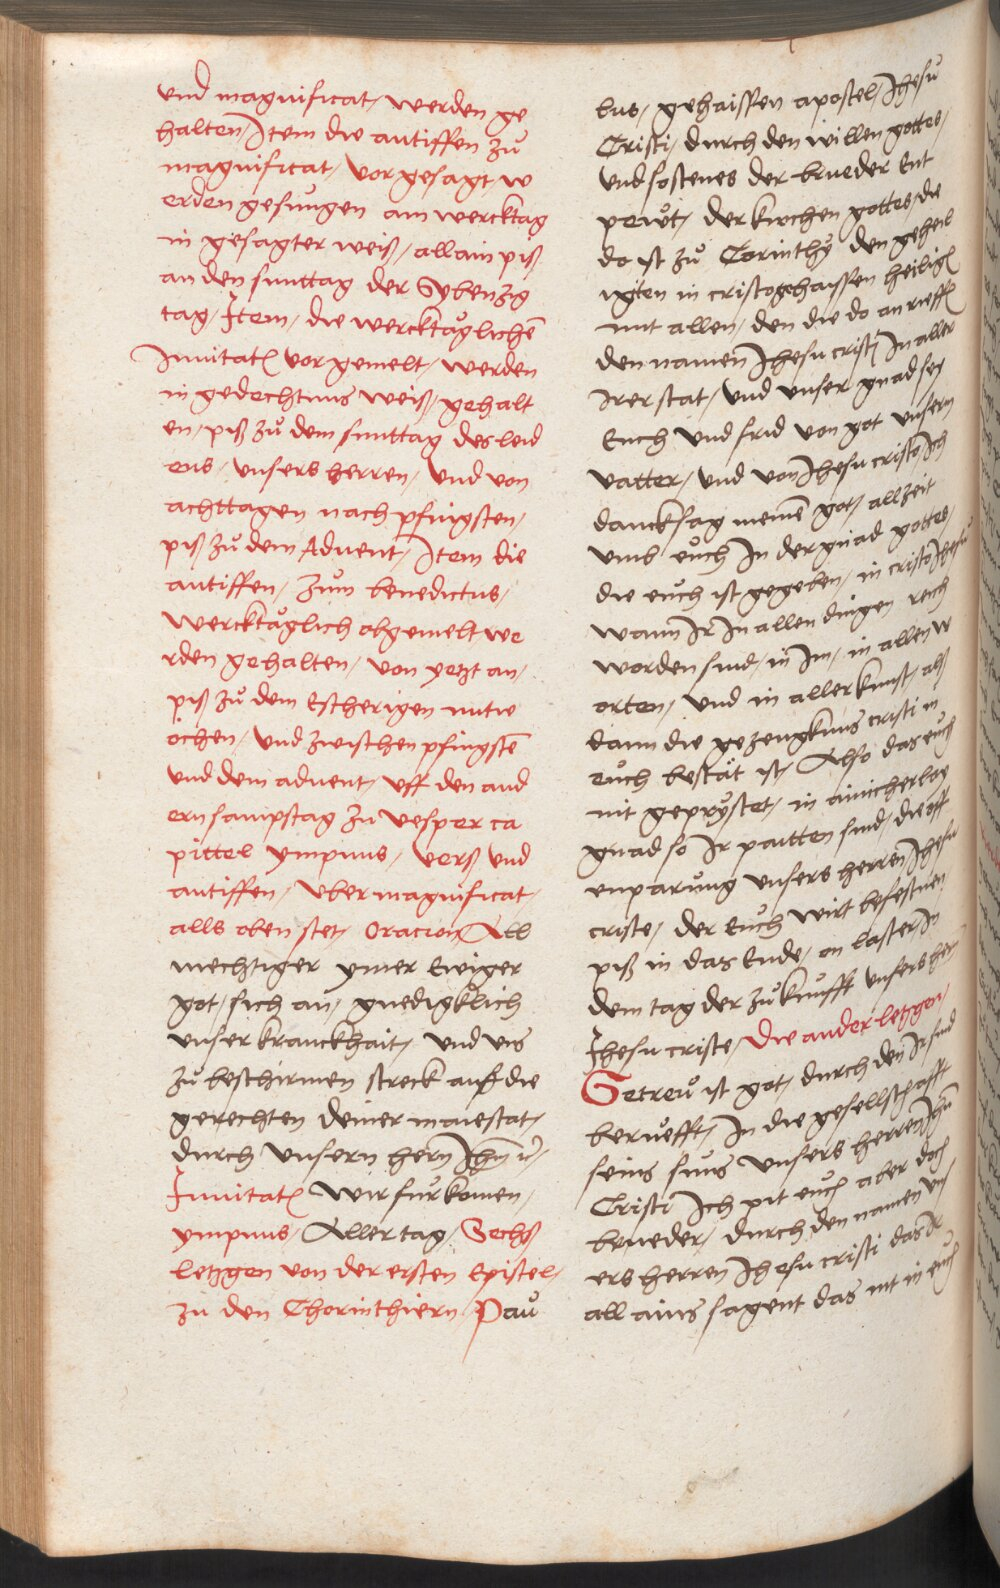 vnd magnificat, werden ge
halten, Item die antiffen zů
magnificat, vor gesagt, w
erden gesungen am wercktag
in gesagter weiß, allain piß
an den sunttag der Sybenzig
tag, Item, die wercktäglichen̄
Inuitat vor gemelt, werden
in gedechtnus weiß, gehalt
en, piß zů dem sunttag des leid
ens, vnsers herren, vnd von
achttagen nach pfingsten,
piß zů dem Aduent, Item die
antiffen, zům benedictus,
wercktäglich obgemelt we
rden gehalten, von yetzt an,
piß zů dem Escherigen mitw
ochen, vnd zwischen pfingstē
vnd dem aduent, vff den and
ern sampstag zu vesper ca
pittel ympnus, verß vnd
antiffen, vber magnificat,
alls oben stet, Oracion All
mechtiger ymer Ewiger
got, sich an, gnedigklich
vnser kranckhait, vnd vns
zů beschirmen streck auß die
gerechten deiner maiestat,
durch vnsern hern Jhm̄ ꝛc,
Inuitat Wir fur komen,
ympnus, Aller tag, Sechß
letzgen von der ersten Epistel,
zu den Chorinthiern Paů
lus, gehaissen apostel, Jhesů
Cristi, durch den willen gottes,
vnd sostenes der brueder Ent
pewt, der kirchen gottes, die
do ist zů Corinthy den geheil
igten in cristo gehaissen heilig
mit allen, den die do an rieff
den namen Jhesu cristj In aller
Irer stat, vnd vnser gnad sey
Euch vnd frid von got vnserm
vatter, vnd von Jhesu cristo Ich
dancksag meinē got, allzeit
vmb eůch In der gnad gottes,
die eůch ist gegeben, in cristo Jhesů
wann Ir In allen dingen reich
worden sind, in Im, in allen w
orten, vnd in aller kunst, alß
dann die gezeugknus cristi in
eůch bestät ist, Also das euch
nit geprystet, in ainicherlay
gnad so Ir paitten sind, die off
enparůng vnsers herren Jhesu
criste, der Eůch wirt befestnen
piß in das Ende, on laster, In
dem tag der zů kunfft vnsers hern̄
Jhesu criste, Die ander letzgen,
Getreẘ ist got, durch den Ir sind
berůefft, In die gesellschafft
seins suns vnsers herren Jhū
Cristi Ich pit euch aber doch
brueder, durch den namen vns
ers herren Jhesu cristi das Ir
all ains sagent das nit in euch